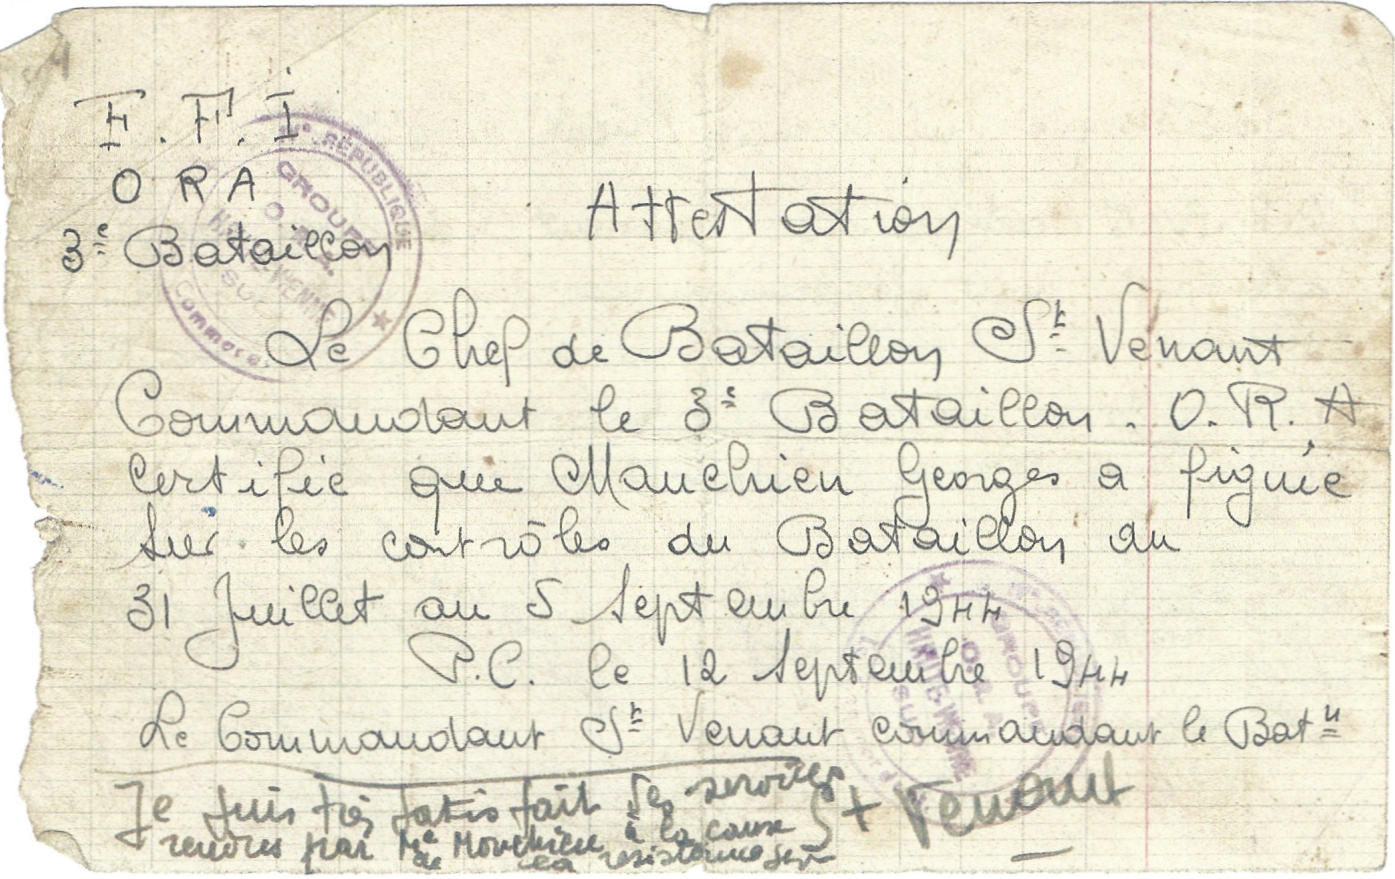 F.F.I
O R A
3e Bataillon
Attestation
Le Chef de Bataillon St Venant
Commandant le 3e Bataillon. O.R.A
certifie que Mauchien Georges a figuré
sur les contrôles du Bataillon du
31 Juillet au 5 Septembre 1944
P.C. le 12 Septembre 1944
Le Commandant St Venant commandant le Batn
Je suis très satisfait des services
rendus par Mr Mauchien à la cause
de la résistance
St Venant
RÉPUBLIQUE
GROUPE
O.R.A.
HAUTE-VIENNE
SUD
GROUPE
O.R.A
HAUTE-VIENNE
SUD